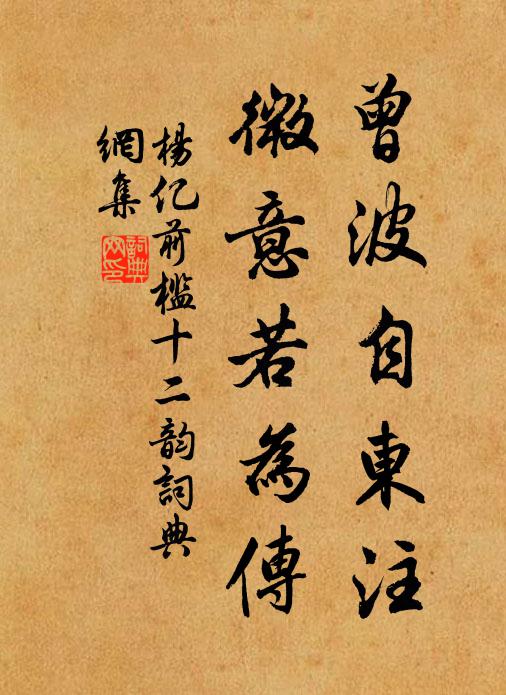 曾波自東注
微意若為傳
楊億前檻十二韵詞典
網集
詞典
网印